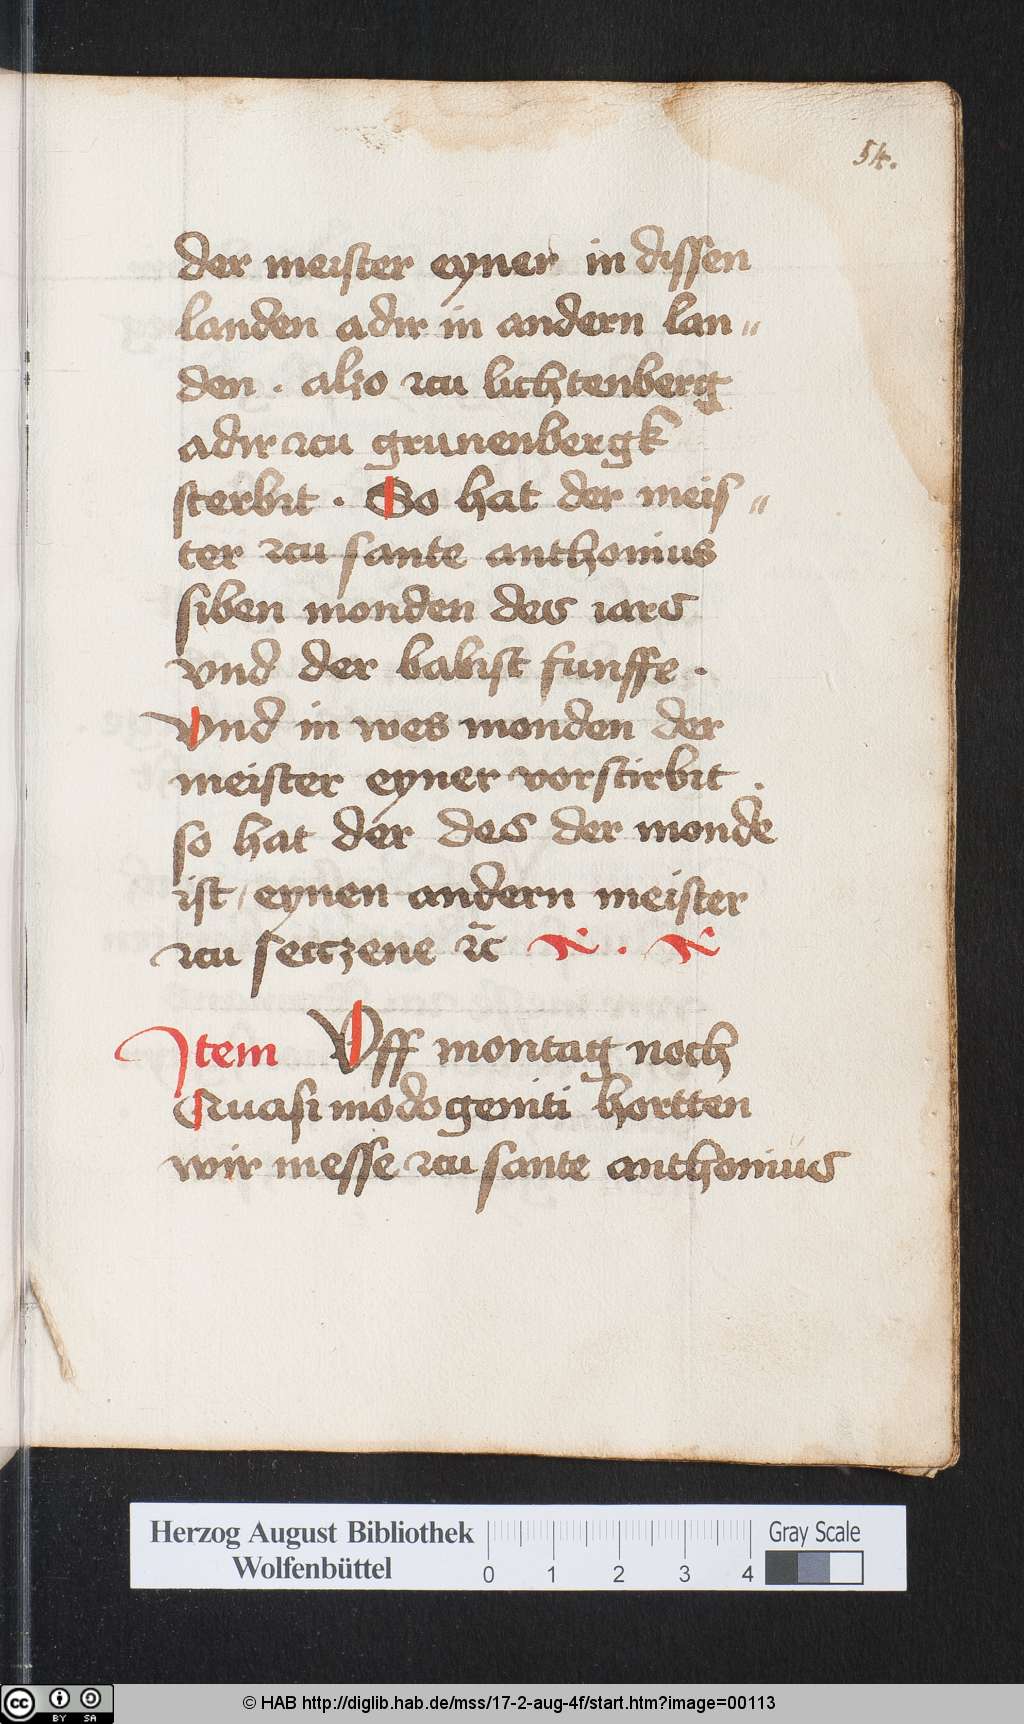 54.
der meister eyner in dissen
landen adir in andern lan〃
den . alzo zcu lichtenberg
adir zcu grunenbergk
sterbit . So hat der meis〃
ter zcu sante anthonius
siben monden des iars
vnd der babist funffe .
Vnd in wes monden der
meister eyner vorstirbit .
so hat der des der monde
ist / eynen andern meister
zcu setczene ꝛc̄
Item Vff montag noch
Quasimodogeniti hortten
wir messe zcu sante anthonius
Herzog August Bibliothek
Wolfenbüttel
0 1 2 3 4
Gray Scale
cc BY SA
© HAB http://diglib.hab.de/mss/17-2-aug-4f/start.htm?image=00113